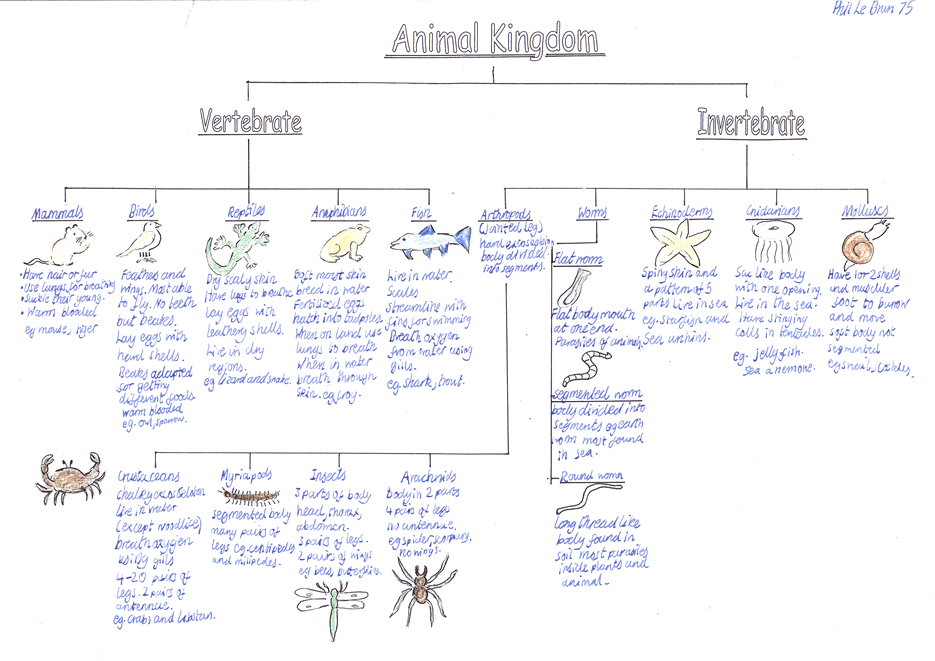 Phil Le Brun 75
Animal Kingdom
Vertebrate
Invertebrate
Mammals
• Have hair or fur
• Use lungs for breathing
• Suckle their young.
• Warm blooded
eg mouse, tiger
Birds
Feathes and
wings. Most able
to fly. No teeth
but beaks.
Lay eggs with
hard shells.
Beaks adapted
for getting
different foods
warm blooded
eg. owl, sparrow.
Reptiles
Dry scaly skin
Have lugs to breathe
lay eggs with
leathery shells.
Live in dry
regions.
eg lizard and snake.
Amphibians
moist skin
breed in water
Fertilised eggs
hatch into tadpoles.
When on land use
lungs to breath
when in water
breath through
skin. eg frog.
Fish
Live in water
Scales
streamline with
fins for swimming
Breath oxygen
from water using
gills.
eg. Shark, trout.
Arthropods
(Jointed leg)
hard exoskeleton
body divided
into segments.
Worms
Flat worm
Flat body mouth
at one end.
Parasies of animals
segmented worm
body divided into
segments eg earth
worm most found
in sea.
Round worm
long thread like
body found in
soil most parasies
inside plants and
animal.
Echinoderms
Spiny skin and
a pattern of 5
parts Live in sea
eg. Starfish and
Sea urchins.
Cnidarians
Sac like body
with one opening.
Live in the sea.
Have stinging
cells in tentacles.
eg. jelly fish.
Sea anemone.
Molluscs
Have 1 or 2 shells
and muscular
foot to burrow
and move
soft body not
segmented
eg snail,
Crustaceans
chalky exoskelton
live in water
(except woodlice)
breath oxygen
using gills
4-20 pairs of
legs. 2 pairs of
antennae.
eg. crabs and lobsters.
Myriapods
segmented body
many pairs of
legs eg. centipedes
and milipedes.
Insects
3 parts of body
head, thorax,
abdomen.
3 pairs of legs.
2 pairs of wings
eg bees, butterflies.
Arachnids
body in 2 parts
4 pairs of legs
no antennae.
eg spider, scorpion,
no wings.